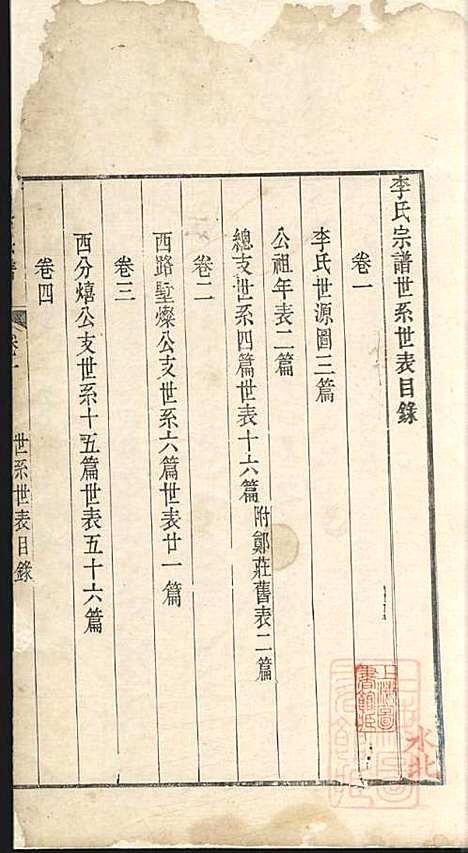 李氏宗譜世系世表目錄
卷一
李氏世源圖三篇
公祖年表二篇
總支世系四篇世表十六篇附鄭莊舊表二篇
卷二
西路墅燦公支世系六篇世表廿一篇
卷三
西分熺公支世系十五篇世表五十六篇
卷四
卷一
世系世表目錄
上海圖書館藏
水北